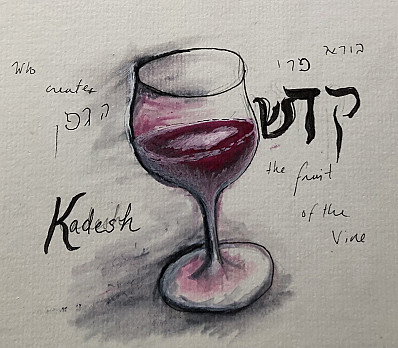 בורא
פרי
הגפן
קדש
Who
creates
the fruit
of the
Vine
Kadesh